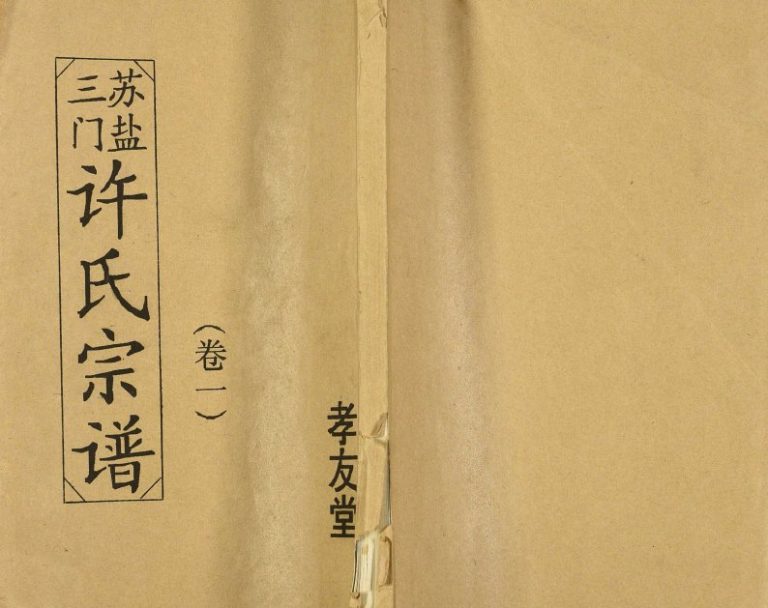 苏盐
三门
许氏宗谱
（卷一）
孝友堂